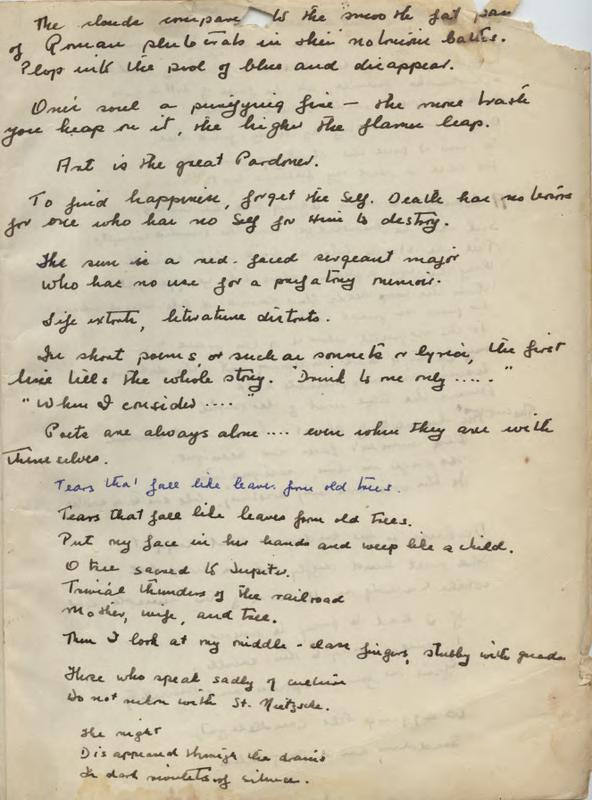 The clouds compare to the smooth fat
of Roman plutocrats in their notorious baths.
Plop into the pool of blue and disappear.
One's soul a purifying fire — the more trash
you heap on it, the higher the flames leap.
Art is the great Pardoner.
To find happiness, forget the Self. Death has no
for one who has no Self for Him to destroy.
The sun is a red-faced sergeant major
who has no use for a prefatory memoir.
Life extorts, literature distorts.
In short poems, or such as sonnets or lyrics, the first
line tells the whole story. "Drink to me only ....."
"When I consider ...."
Poets are always alone .... even when they are with
themselves.
Tears that fall like leaves from old trees.
Tears that fall like leaves from old trees.
Put my face in her hands and weep like a child.
O tree sacred to Jupiter.
Trivial thunders of the railroad
Mother, wife, and tree.
Then I look at my middle-class fingers, stubby with
Those who speak sadly of
Do not with St. Nietzsche.
The night
Disappeared through the drains
In dark rivulets of silence.